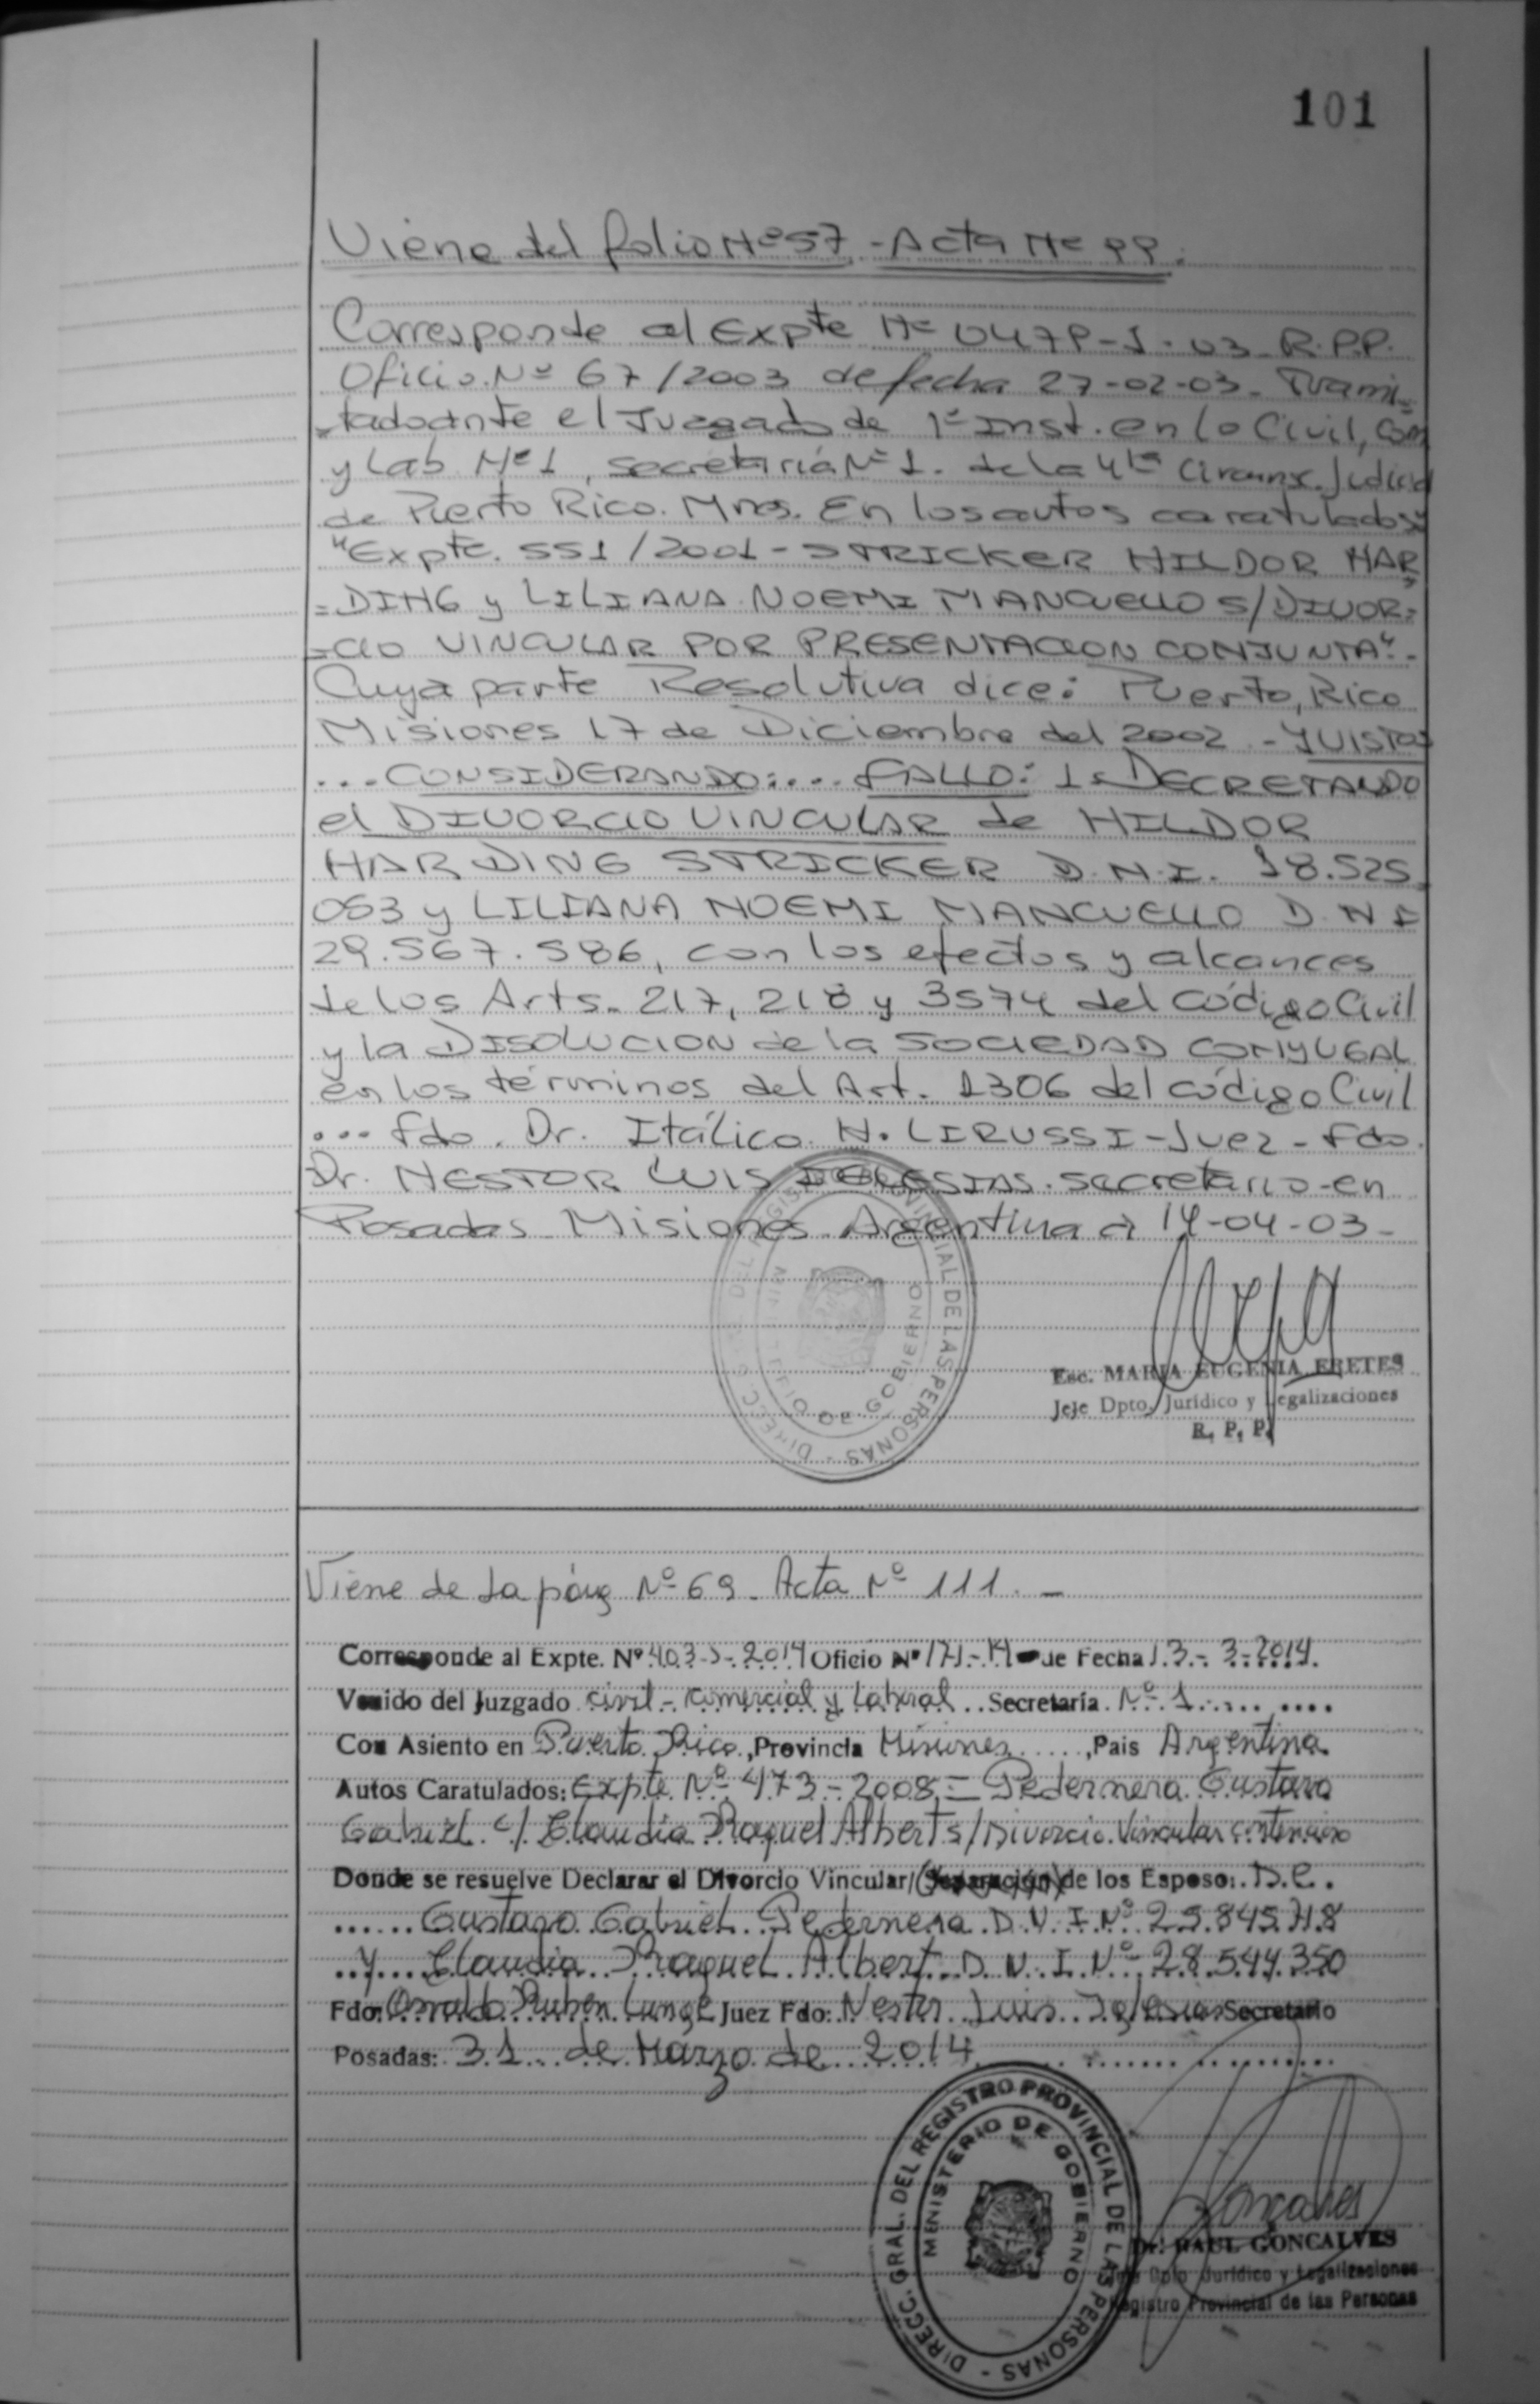 101
Viene del folio Nº 57 - Acta Nº 99.
Corresponde al Expte Nº 0479-1-03 R.P.P.
Oficio Nº 67/2003 de fecha 27-02-03 - Trami=
=tado ante el Juzgado de 1º Inst. en lo Civil, Com
y Lab Nº 1, secretaría Nº 1. de la 4ta Circunsc. Judicial
de Puerto Rico. Mnes. En los autos caratulados:
"Expte. 551/2001 - STRICKER HILDOR HAR=
=DING y LILIANA NOEMI MANCUELLO S/DIVOR=
=CIO VINCULAR POR PRESENTACION CONJUNTA".-
Cuya parte Resolutiva dice: Puerto, Rico
Misiones 17 de Diciembre del 2002 - Y VISTOS
... CONSIDERANDO:... FALLO: 1º DECRETANDO
el DIVORCIO VINCULAR de HILDOR
HARDING STRICKER D.N.I. 18.525.
053 y LILIANA NOEMI MANCUELLO D.N.I
29.567.586, con los efectos y alcances
de los Arts. 217, 218 y 3574 del Código Civil
y la DISOLUCION de la SOCIEDAD CONYUGAL
en los términos del Art. 1306 del código Civil
... fdo. Dr. Itálico N. LIRUSSI - Juez - fdo.
Dr. NESTOR LUIS IGLESIAS. secretario - en
Posadas Misiones Argentina a 14-04-03 -
DIRECC. GRAL. DEL REGISTRO PROVINCIAL DE LAS PERSONAS -
MINISTERIO DE GOBIERNO
Esc. MARIA EUGENIA ERETES
Jefe Dpto. Jurídico y Legalizaciones
R. P. P.
Viene de La pág Nº 69 - Acta Nº 111. -
Corresponde al Expte. Nº 403-S-2014 Oficio Nº 171-14 de Fecha 13-3-2014.
Venido del Juzgado civil - comercial y Laboral Secretaría Nº 1
Con Asiento en Puerto Rico, Provincia Misiones, Pais Argentina
Autos Caratulados: Expte Nº 473-2008 = Pedernera Gustavo
Gabriel c/ Claudia Raquel Albert s/ Divorcio Vincular contencioso
Donde se resuelve Declarar el Divorcio Vincular/(Separación) de los Esposo: D.C.
Gustavo Gabriel Pedernera D.N.I Nº 29.845.718
y Claudia Raquel Albert D.N.I Nº 28.544.350
Fdo: Osvaldo Ruben Lunge Juez Fdo: Nestor Luis Iglesias Secretario
Posadas: 31 de Marzo de 2014
DIRECC. GRAL. DEL REGISTRO PROVINCIAL DE LAS PERSONAS -
MINISTERIO DE GOBIERNO
Dr. RAUL GONCALVES
Jefe Dpto. Jurídico y Legalizaciones
Registro Provincial de las Personas